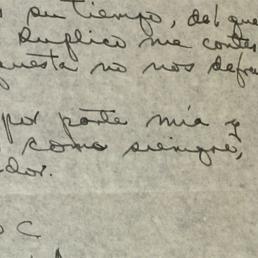 su tiempo, del que
suplico me contes
uesta no nos defra
por parte mía y
como siempre,
dor.
o C.